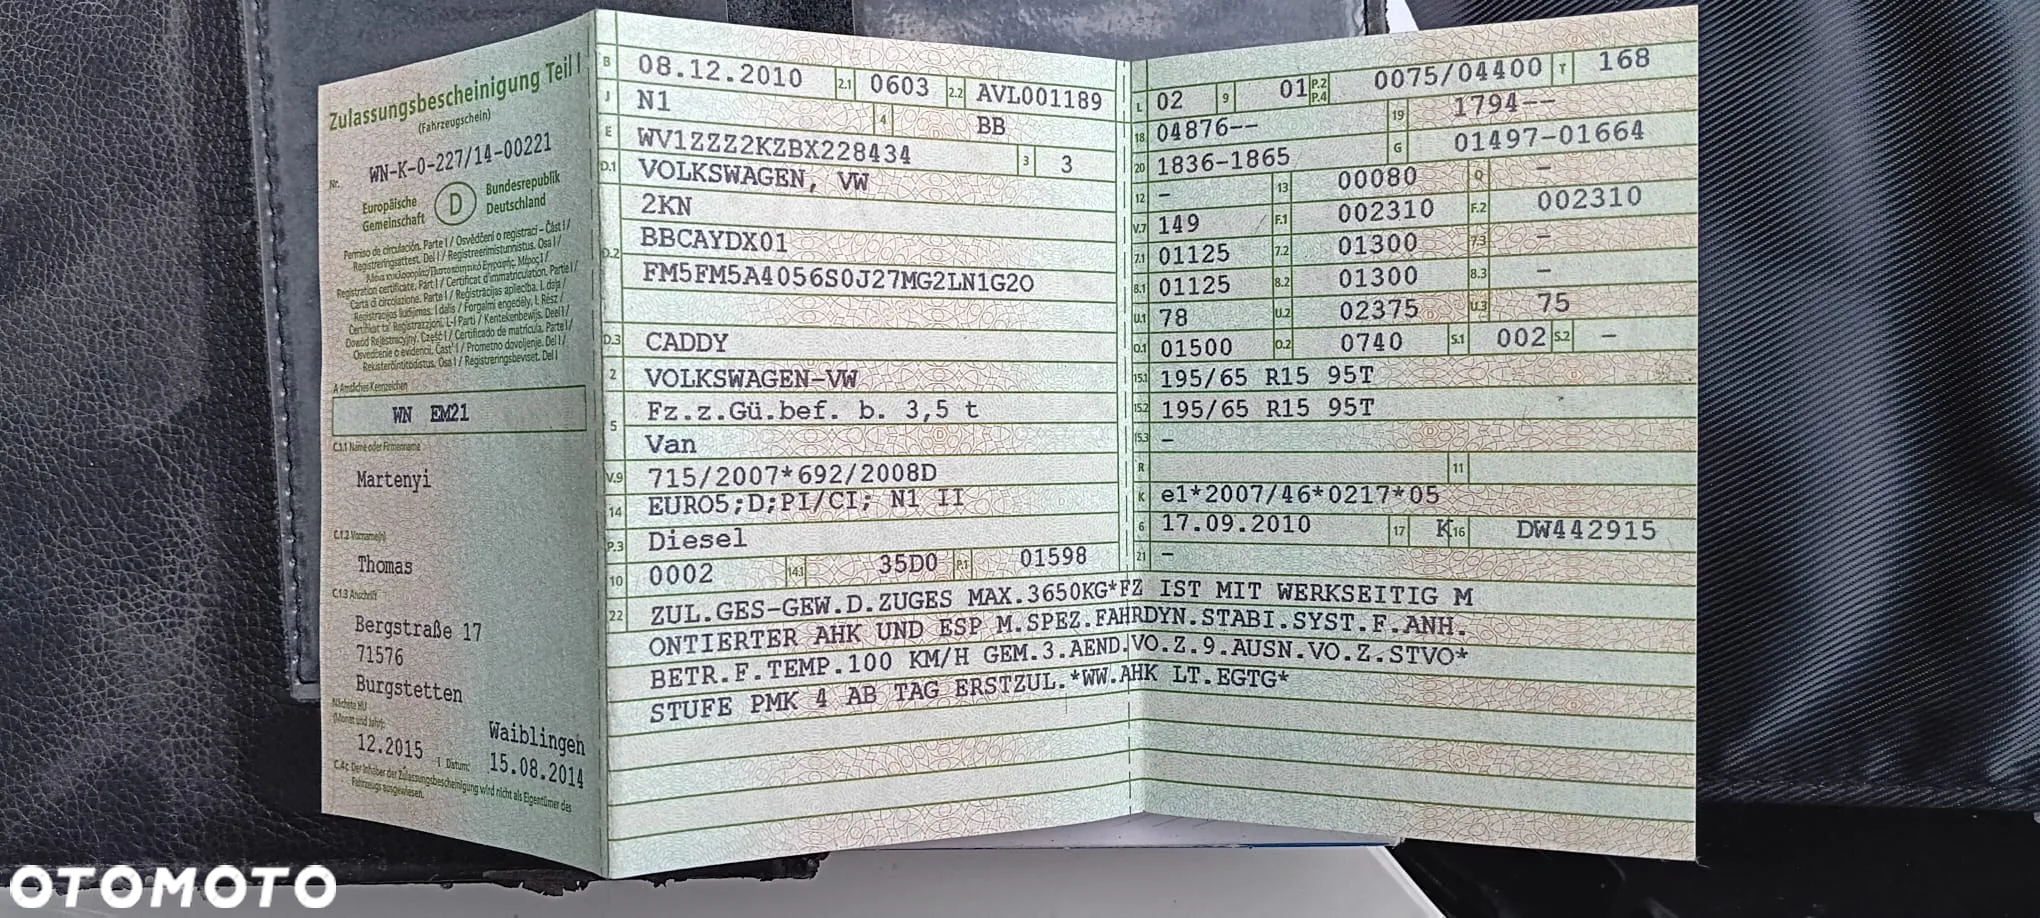 Zulassungsbescheinigung Teil I
(Fahrzeugschein)
Nr. WN-K-0-227/14-00221
Europäische Gemeinschaft D Bundesrepublik Deutschland
Permiso de circulación. Parte I / Osvědčení o registraci – Část I /
Registreringsattest. Del I / Registreerimistunnistus. Osa I /
Registration certificate. Part I / Certificat d'immatriculation. Partie I /
Carta di circolazione. Parte I / Reģistrācijas apliecība. I. daļa /
Registracijos liudijimas. I dalis / Forgalmi engedély. I. Rész /
Ċertifikat ta' Reġistrazzjoni. L-I Parti / Kentekenbewijs. Deel I /
Dowód Rejestracyjny. Część I / Certificado de matrícula. Parte I /
Osvedčenie o evidencii. Časť I / Prometno dovoljenje. Del I /
Rekisteröintitodistus. Osa I / Registreringsbeviset. Del I
A Amtliches Kennzeichen
WN EM21
C.1.1 Name oder Firmenname
Martenyi
C.1.2 Vorname(n)
Thomas
C.1.3 Anschrift
Bergstraße 17
71576
Burgstetten
Nächste HU
(Monat und Jahr):
Waiblingen
12.2015 Datum: 15.08.2014
C.4c Der Inhaber der Zulassungsbescheinigung wird nicht als Eigentümer des
Fahrzeugs ausgewiesen.
B 08.12.2010 2.1 0603 2.2 AVL001189
J N1 4 BB
E WV1ZZZ2KZBX228434 3 3
D.1 VOLKSWAGEN, VW
2KN
D.2 BBCAYDX01
FM5FM5A4056S0J27MG2LN1G2O
D.3 CADDY
2 VOLKSWAGEN-VW
5 Fz.z.Gü.bef. b. 3,5 t
Van
V.9 715/2007*692/2008D
14 EURO5;D;PI/CI; N1 II
P.3 Diesel
10 0002 14.1 35D0 P.1 01598
L 02 9 01 P.2 P.4 0075/04400 T 168
18 04876-- 19 1794--
20 1836-1865 G 01497-01664
12 - 13 00080 Q -
V.7 149 F.1 002310 F.2 002310
7.1 01125 7.2 01300 7.3 -
8.1 01125 8.2 01300 8.3 -
U.1 78 U.2 02375 U.3 75
O.1 01500 O.2 0740 S.1 002 S.2 -
15.1 195/65 R15 95T
15.2 195/65 R15 95T
15.3 -
R 11
K e1*2007/46*0217*05
6 17.09.2010 17 K 16 DW442915
21 -
22 ZUL.GES-GEW.D.ZUGES MAX.3650KG*FZ IST MIT WERKSEITIG M
ONTIERTER AHK UND ESP M.SPEZ.FAHRDYN.STABI.SYST.F.ANH.
BETR.F.TEMP.100 KM/H GEM.3.AEND.VO.Z.9.AUSN.VO.Z.STVO*
STUFE PMK 4 AB TAG ERSTZUL.*WW.AHK LT.EGTG*
OTOMOTO